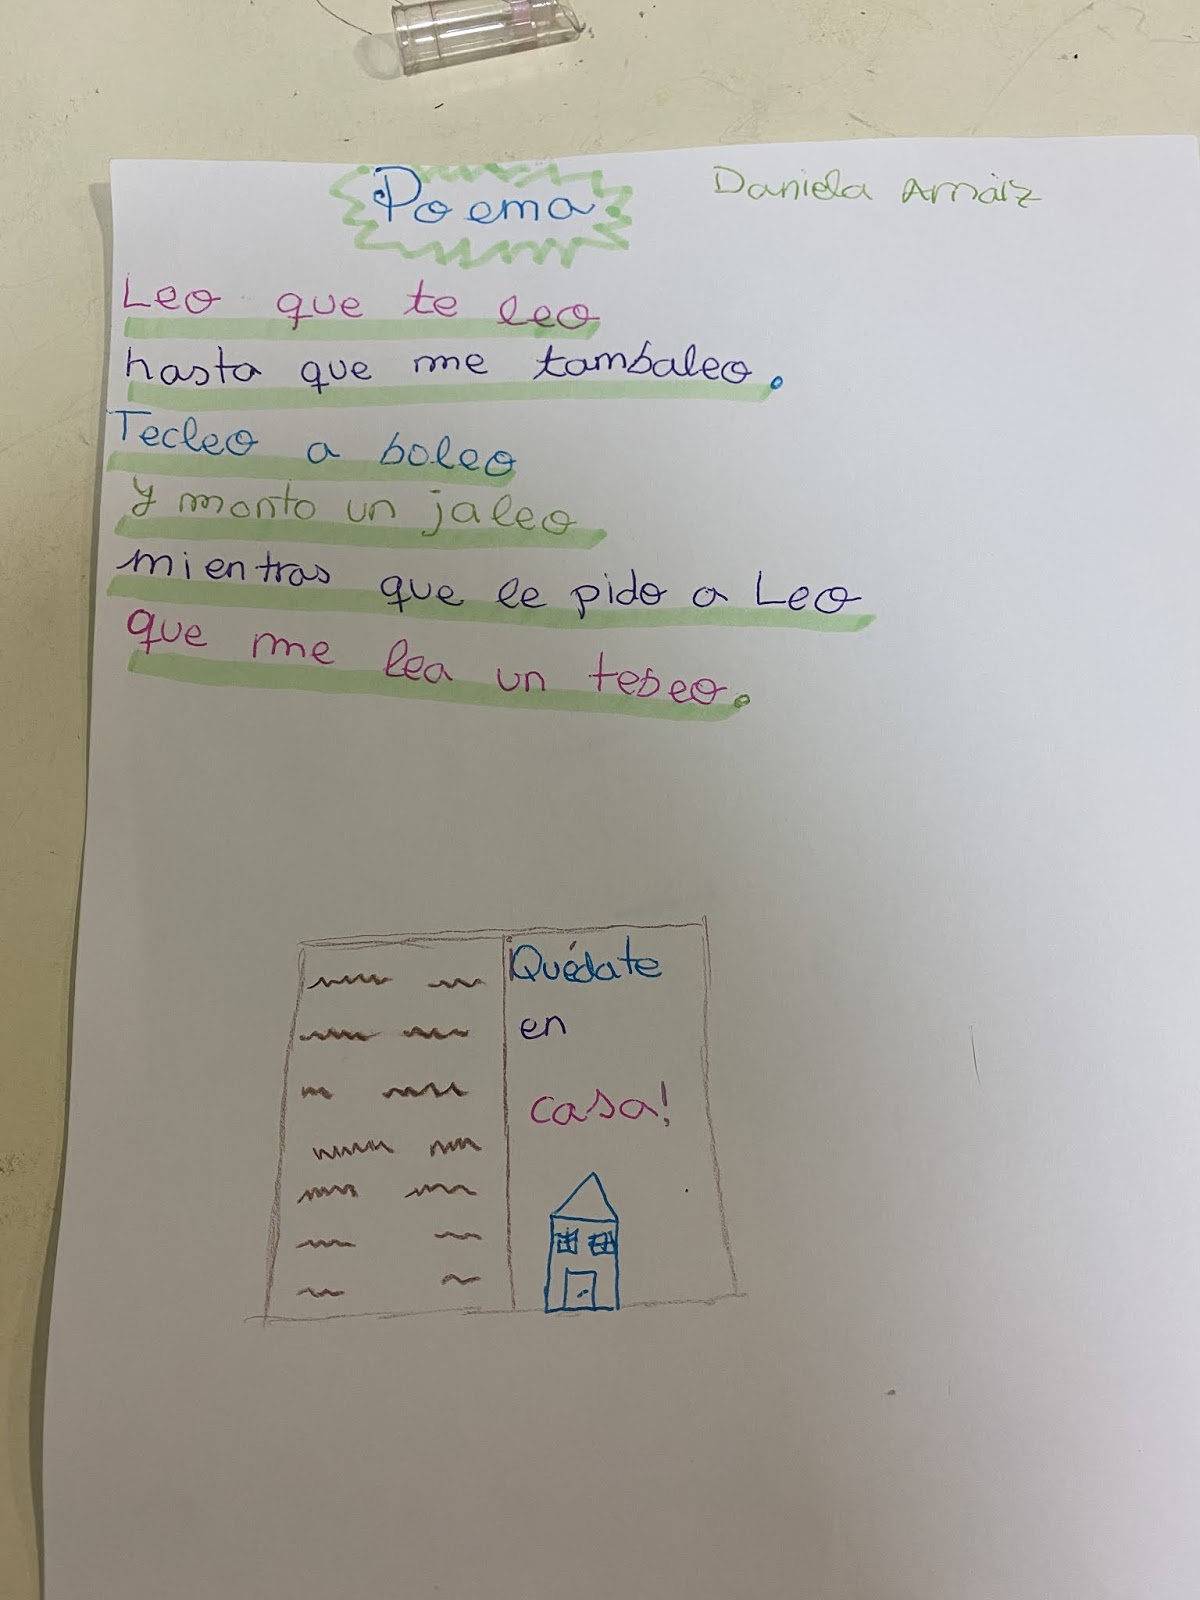 Poema
Daniela Arnáiz
Leo que te leo
hasta que me tambaleo.
Tecleo a boleo
y monto un jaleo
mientras que le pido a Leo
que me lea un tebeo.
¡Quédate
en
casa!